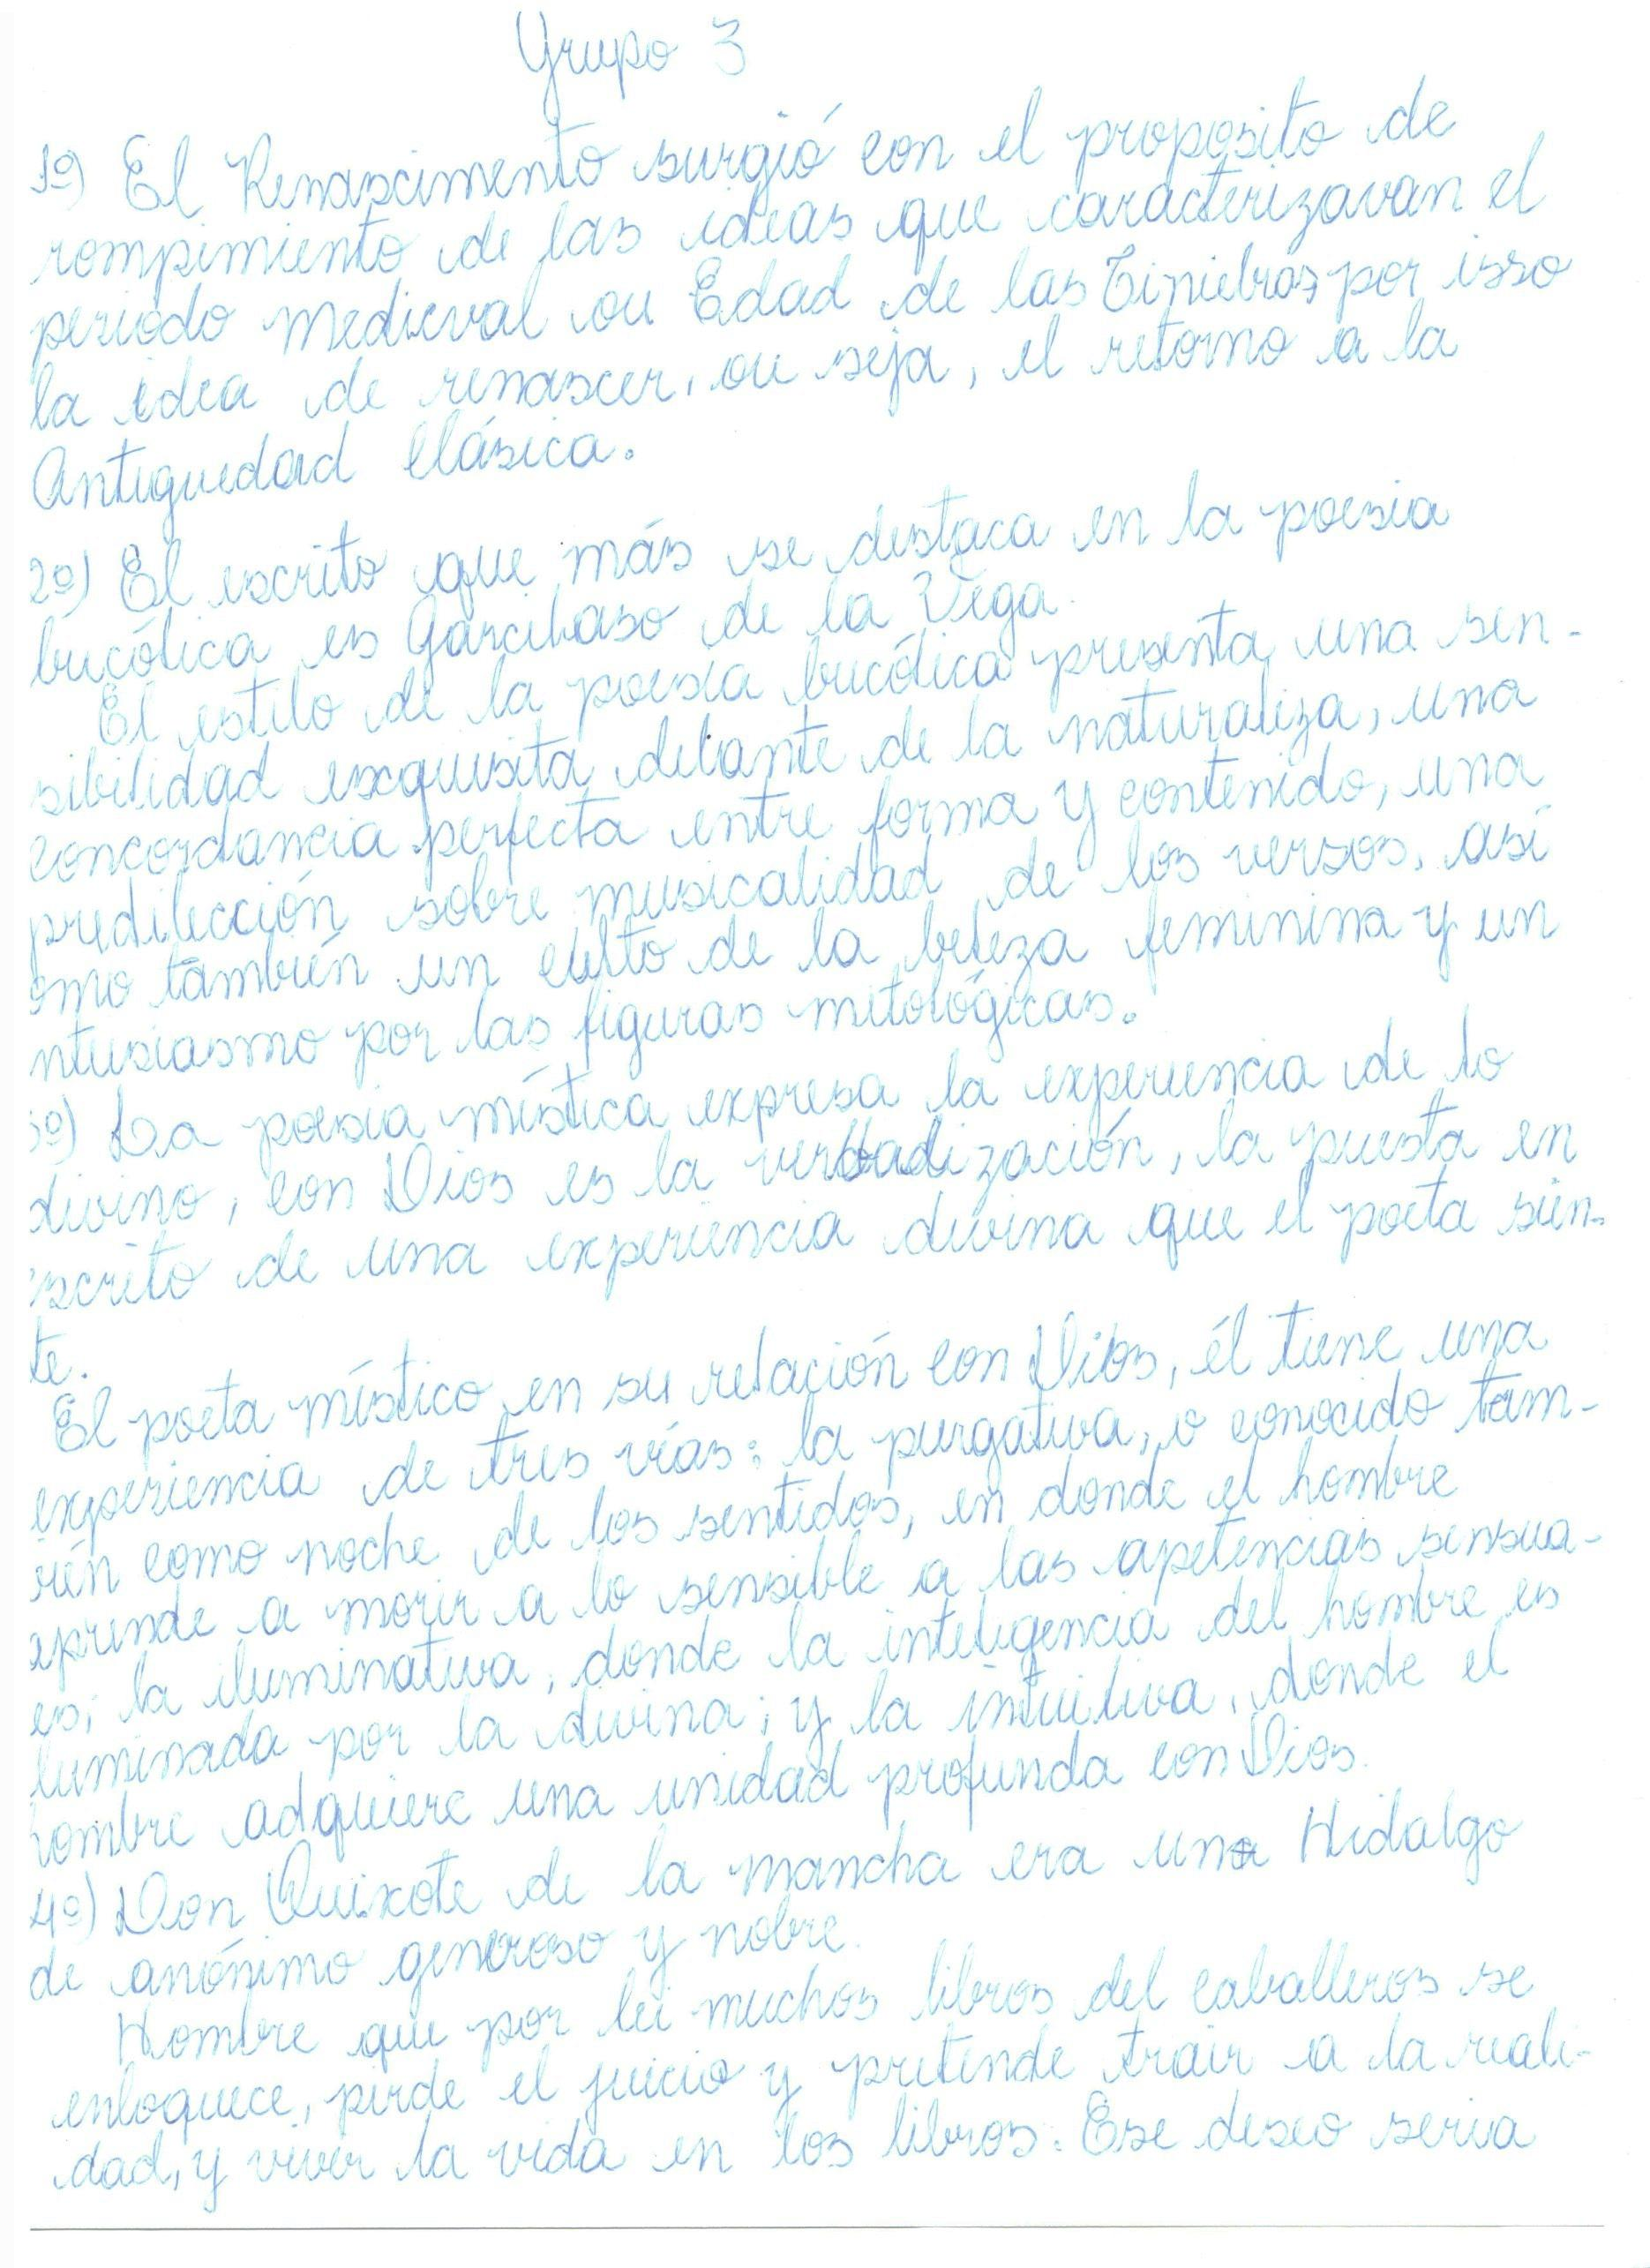 Grupo 3
1º) El Renascimento surgió con el proposito de
rompimiento de las ideas que caracterizavan el
periodo medieval ou Edad de las Tinieblas, por isso
la idea de renascer, ou seja, el retorno a la
Antiguedad Clásica.
2º) El escrito que más se destaca en la poesia
bucólica es Garcilaso de la Vega.
El estilo de la poesía bucólica presenta una sen-
sibilidad exquisita delante de la naturaleza, una
concordancia perfecta entre forma y contenido, una
predilección sobre musicalidad de los versos, así
omo también un culto de la beleza feminina y un
ntusiasmo por las figuras mitológicas.
3º) La poesia mística expresa la experiencia de lo
divino, con Dios es la verbadización, la puesta en
escrito de una experiencia divina que el poeta sien-
te.
El poeta místico en su relación con Dios, él tiene una
experiencia de tres vías: la purgativa, o conocido tam-
bién como noche de los sentidos, en donde el hombre
aprende a morir a lo sensible a las apetencias sensua-
es; la iluminativa, donde la inteligencia del hombre es
luminada por la divina; y la intuitiva, donde el
hombre adquiere una unidad profunda con Dios.
4º) Don Quixote de la mancha era una Hidalgo
de anónimo generoso y nobre.
Hombre que por lei muchos libros del caballeros se
enloquece, pirde el juicio y pretende trair a la reali-
dad, y viver la vida en los libros. Ese deseo seria